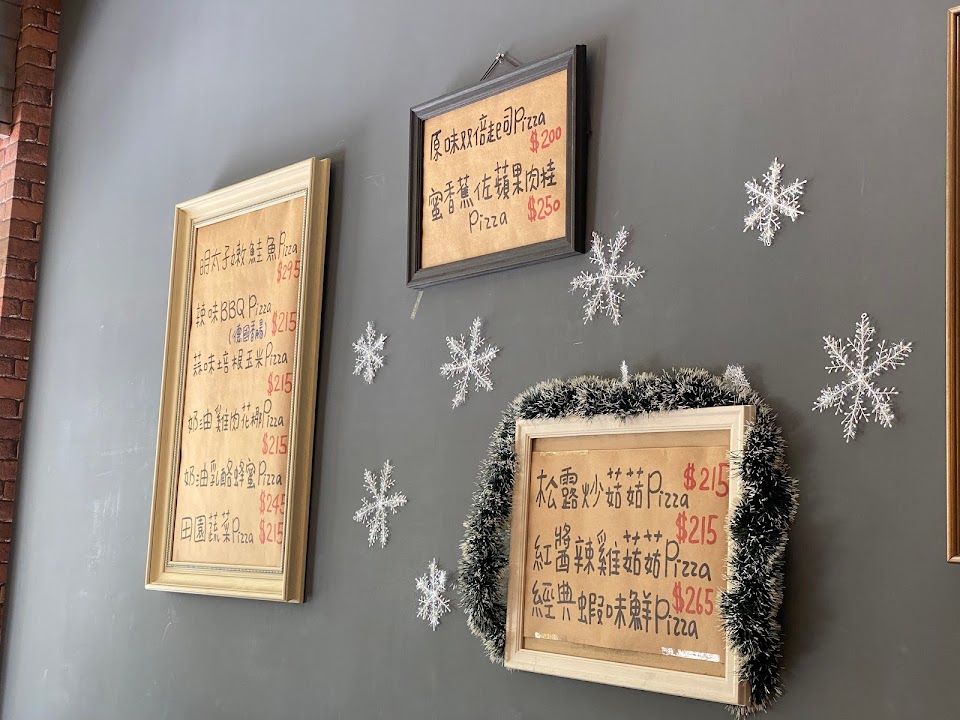 明太子嫩鮭魚Pizza
$295
辣味BBQ Pizza
(德國香腸) $215
蒜味培根玉米Pizza
$215
奶油雞肉花椰Pizza
$215
奶油乳酪蜂蜜Pizza
$245
田園蔬菜Pizza $215
原味双倍起司Pizza
$200
蜜香蕉佐蘋果肉桂
Pizza $250
松露炒菇菇Pizza $215
$215
紅醬辣雞菇菇Pizza
經典蝦味鮮Pizza $265